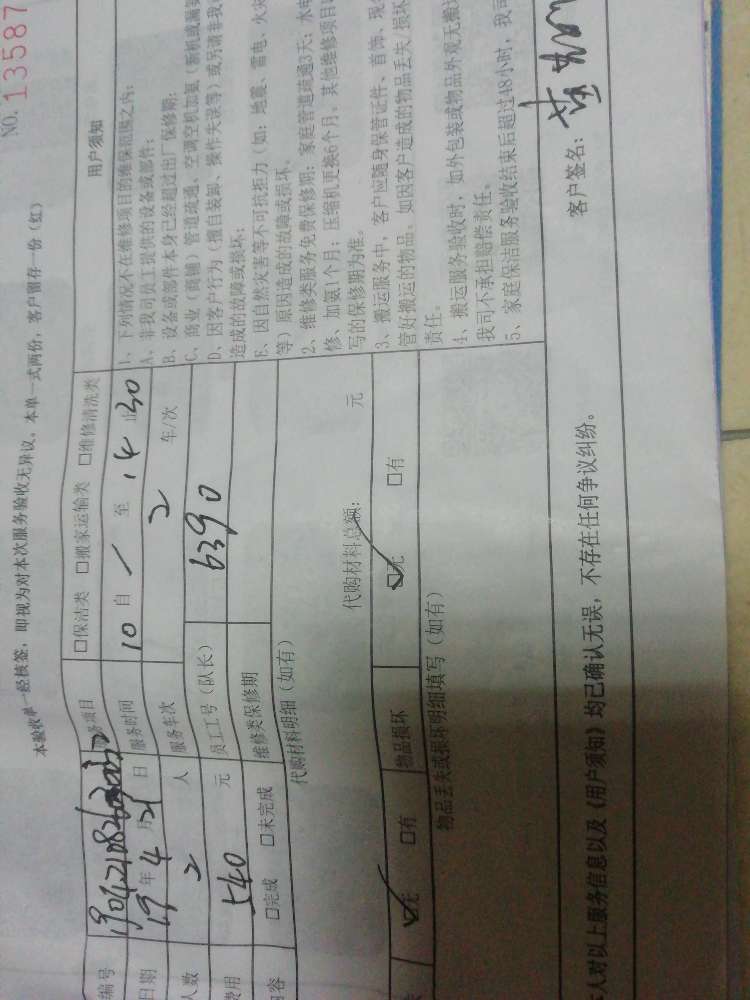 NO. 13587
本验收单一经核签，即视为对本次服务验收无异议。本单一式两份，客户留存一份（红）
编号
务项目 □保洁类 □搬家运输类 □维修清洗类
日期 19 年 4 月 21 日 服务时间 10 自 / 至 14 止 30
人数 2 人 服务车次 2 车/次
费用 540 元 员工工号（队长） 6390
内容 □完成 □未完成 维修类保修期
代购材料明细（如有）
代购材料总额： 元
□无 □有 物品损坏 □无 □有
物品丢失或损坏明细填写（如有）
用户须知
1、下列情况不在维修项目的维保范围之内：
A、非我司员工提供的设备或部件；
B、设备或部件本身已经超过出厂保修期；
C、商业（商铺）管道疏通、空调空机加氨（新机或漏氨
D、因客户行为（擅自装卸、操作失误等）或另请非我
造成的故障或损坏；
E、因自然灾害等不可抗拒力（如：地震、雷电、火灾
等）原因造成的故障或损坏。
2、维修类服务免费保修期：家庭管道疏通3天；水电
修、加氨1个月；压缩机更换6个月。其他维修项目
写的保修期为准。
3、搬运服务中，客户应随身保管证件、首饰、现
管好搬运的物品。如因客户造成的物品丢失/损坏
责任。
4、搬运服务验收时，如外包装或物品外观无
我司不承担赔偿责任。
5、家庭保洁服务验收结束后超过48小时，我司
人对以上服务信息以及《用户须知》均已确认无误，不存在任何争议纠纷。
客户签名：